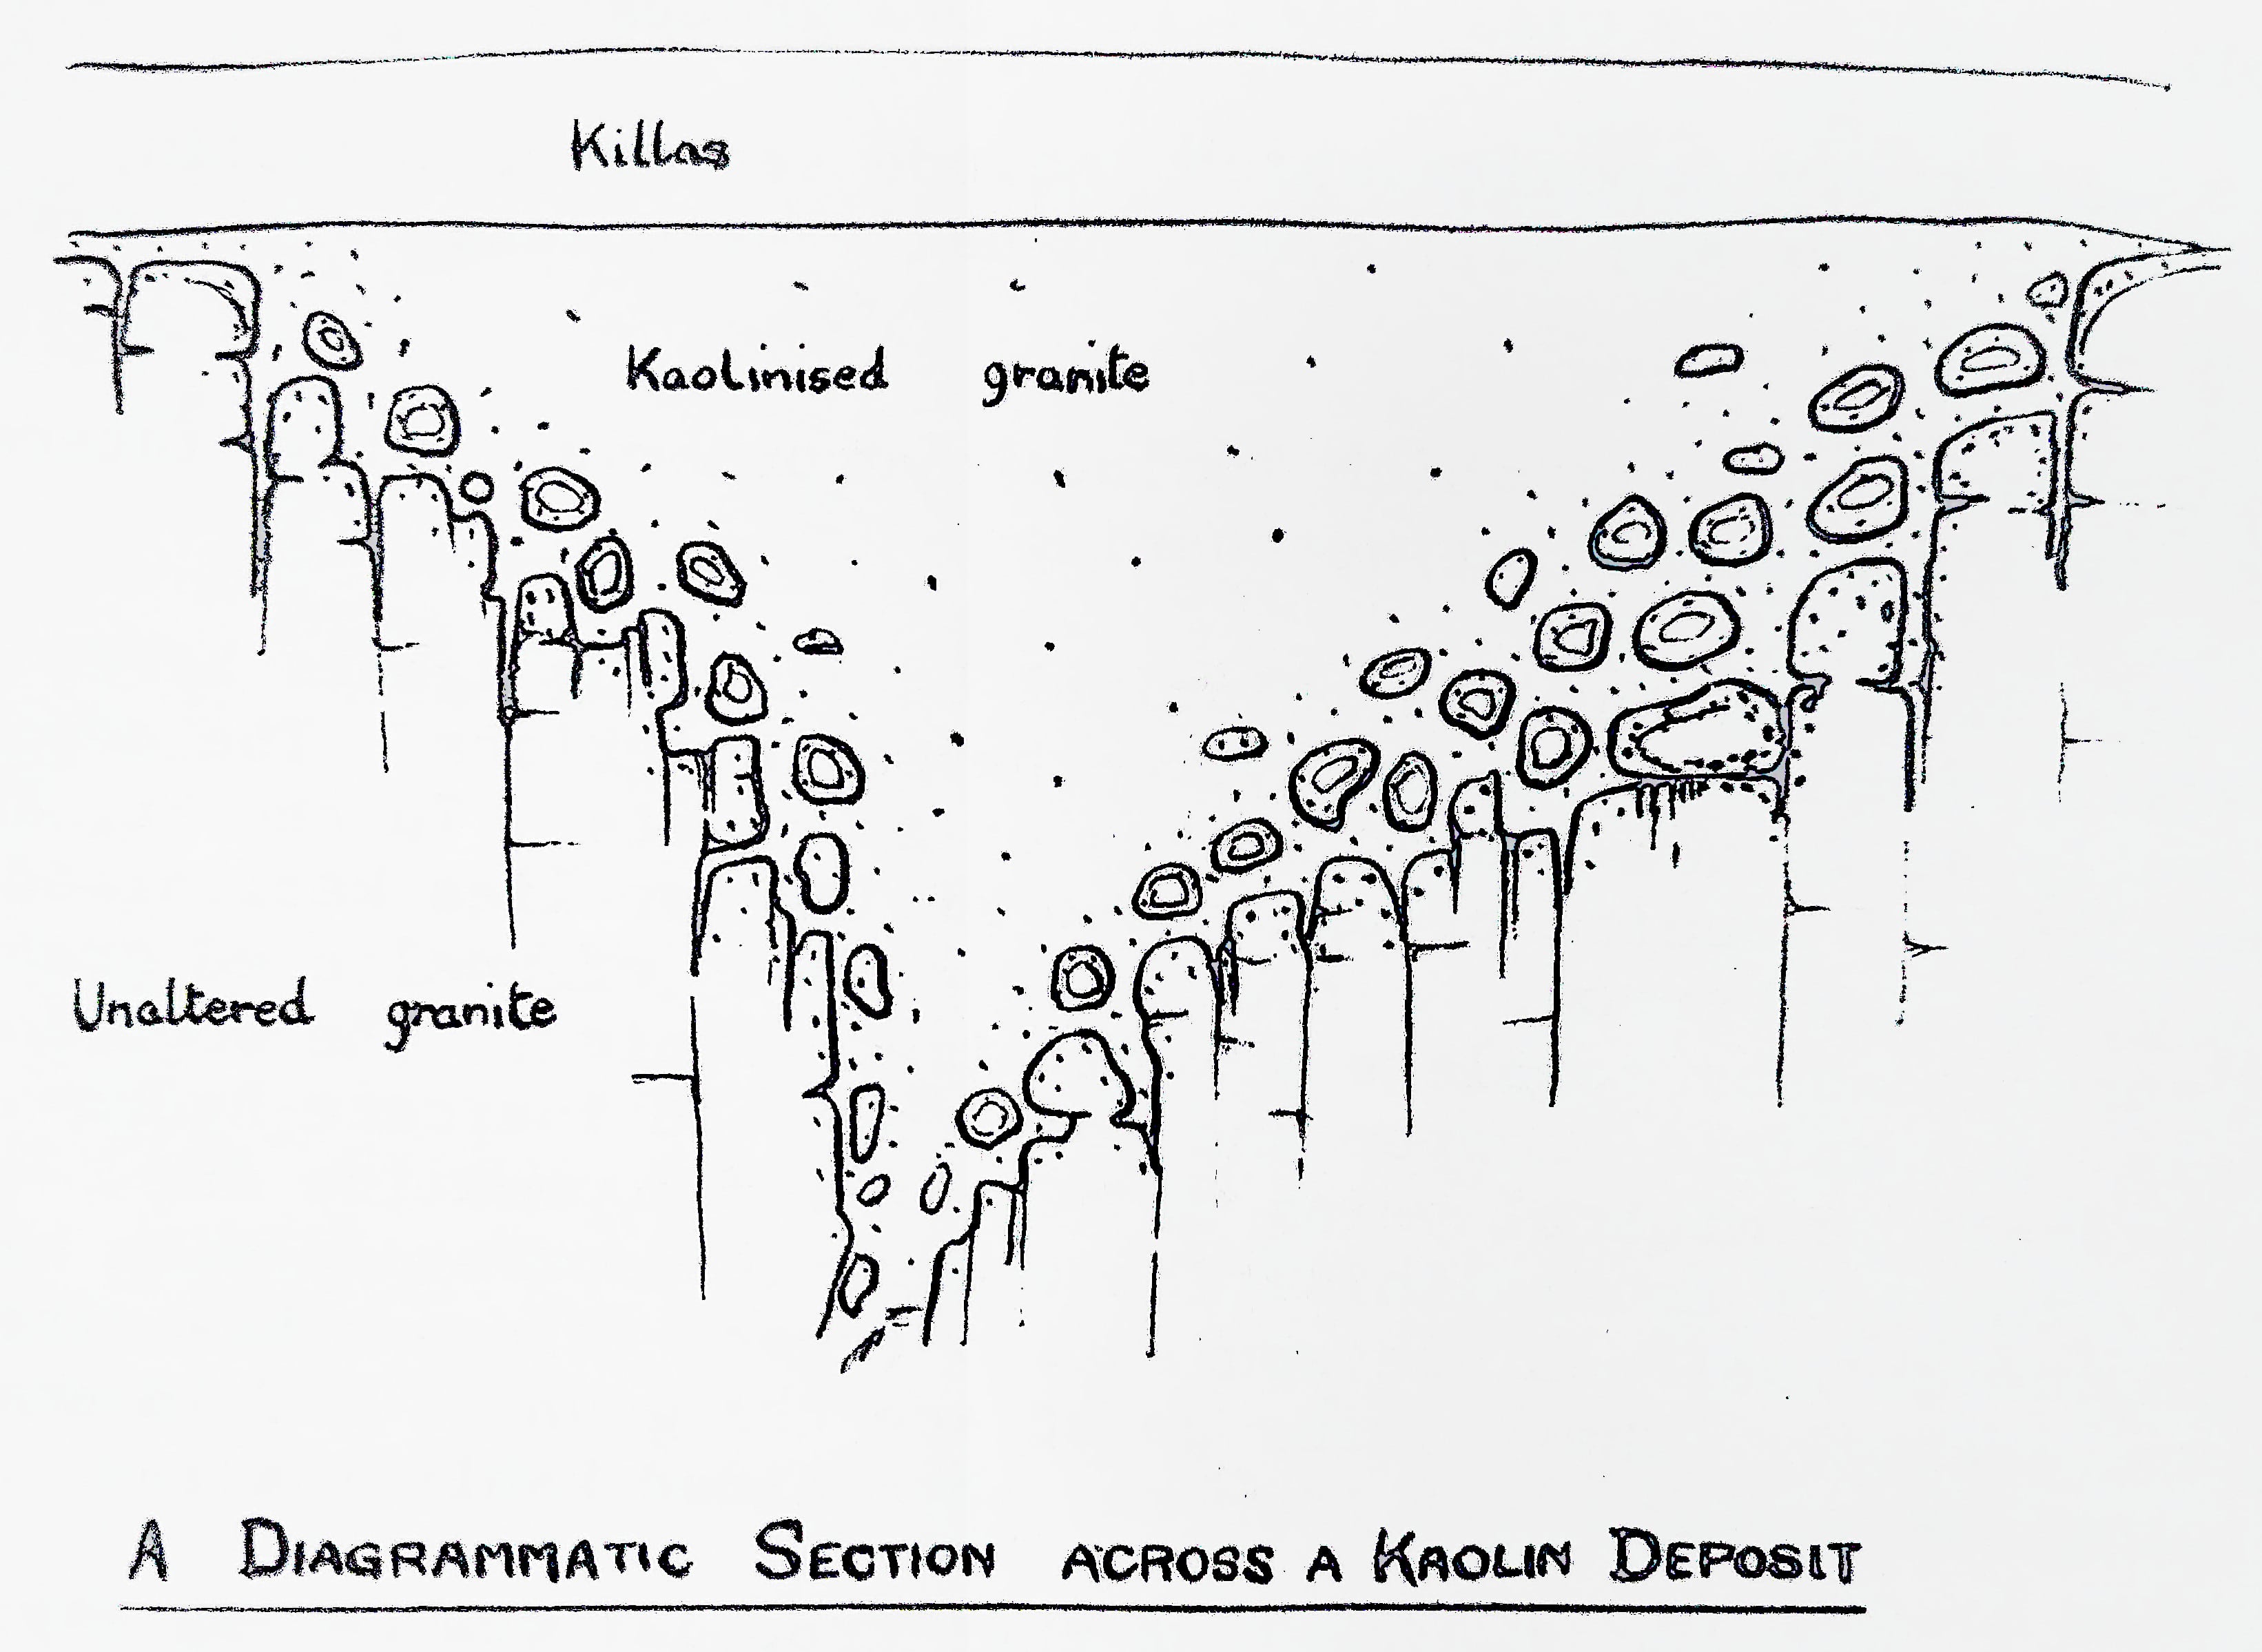 Killas
Kaolinised granite
Unaltered granite
A DIAGRAMMATIC SECTION ACROSS A KAOLIN DEPOSIT